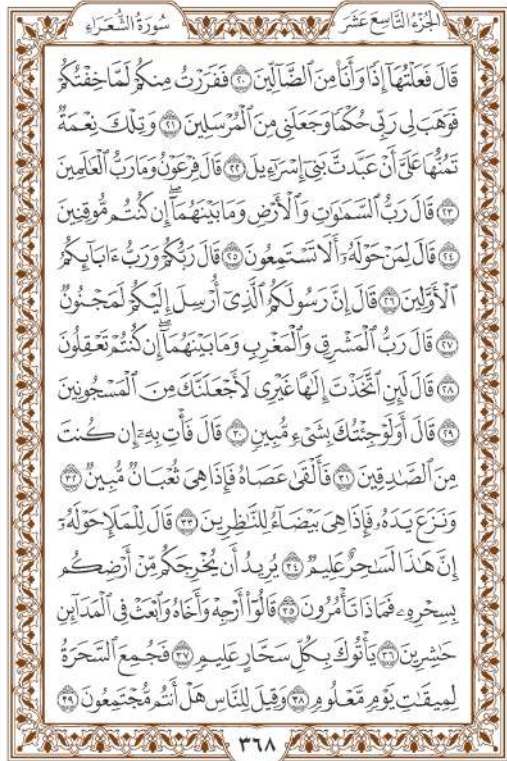 الجُزْءُ التَّاسِعَ عَشَرَ
سُورَةُ الشُّعَرَاءِ
قَالَ فَعَلْتُهَآ إِذًا وَأَنَا۠ مِنَ ٱلضَّآلِّينَ ٢٠ فَفَرَرْتُ مِنكُمْ لَمَّا خِفْتُكُمْ
فَوَهَبَ لِي رَبِّي حُكْمًا وَجَعَلَنِي مِنَ ٱلْمُرْسَلِينَ ٢١ وَتِلْكَ نِعْمَةٌ
تَمُنُّهَا عَلَىَّ أَنْ عَبَّدتَّ بَنِيٓ إِسْرَٰٓءِيلَ ٢٢ قَالَ فِرْعَوْنُ وَمَا رَبُّ ٱلْعَٰلَمِينَ
٢٣ قَالَ رَبُّ ٱلسَّمَٰوَٰتِ وَٱلْأَرْضِ وَمَا بَيْنَهُمَآۖ إِن كُنتُم مُّوقِنِينَ
٢٤ قَالَ لِمَنْ حَوْلَهُۥٓ أَلَا تَسْتَمِعُونَ ٢٥ قَالَ رَبُّكُمْ وَرَبُّ ءَابَآئِكُمُ
ٱلْأَوَّلِينَ ٢٦ قَالَ إِنَّ رَسُولَكُمُ ٱلَّذِيٓ أُرْسِلَ إِلَيْكُمْ لَمَجْنُونٌ
٢٧ قَالَ رَبُّ ٱلْمَشْرِقِ وَٱلْمَغْرِبِ وَمَا بَيْنَهُمَآۖ إِن كُنتُمْ تَعْقِلُونَ
٢٨ قَالَ لَئِنِ ٱتَّخَذْتَ إِلَٰهًا غَيْرِي لَأَجْعَلَنَّكَ مِنَ ٱلْمَسْجُونِينَ
٢٩ قَالَ أَوَلَوْ جِئْتُكَ بِشَيْءٍ مُّبِينٍ ٣٠ قَالَ فَأْتِ بِهِۦٓ إِن كُنتَ
مِنَ ٱلصَّٰدِقِينَ ٣١ فَأَلْقَىٰ عَصَاهُ فَإِذَا هِيَ ثُعْبَانٌ مُّبِينٌ ٣٢
وَنَزَعَ يَدَهُۥ فَإِذَا هِيَ بَيْضَآءُ لِلنَّٰظِرِينَ ٣٣ قَالَ لِلْمَلَإِ حَوْلَهُۥٓ
إِنَّ هَٰذَا لَسَٰحِرٌ عَلِيمٌ ٣٤ يُرِيدُ أَن يُخْرِجَكُم مِّنْ أَرْضِكُم
بِسِحْرِهِۦ فَمَاذَا تَأْمُرُونَ ٣٥ قَالُوٓا۟ أَرْجِهْ وَأَخَاهُ وَٱبْعَثْ فِي ٱلْمَدَآئِنِ
حَٰشِرِينَ ٣٦ يَأْتُوكَ بِكُلِّ سَحَّارٍ عَلِيمٍ ٣٧ فَجُمِعَ ٱلسَّحَرَةُ
لِمِيقَٰتِ يَوْمٍ مَّعْلُومٍ ٣٨ وَقِيلَ لِلنَّاسِ هَلْ أَنتُم مُّجْتَمِعُونَ ٣٩
٣٦٨